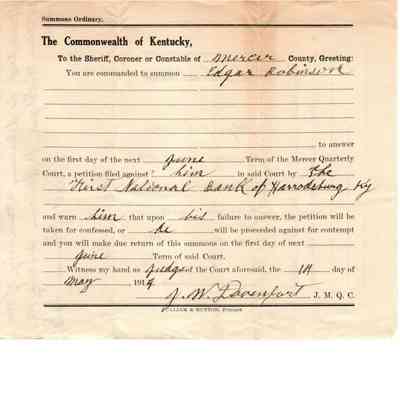 Summons Ordinary.
The Commonwealth of Kentucky,
To the Sheriff, Coroner or Constable of Mercer County, Greeting:
You are commanded to summon Edgar Robinson
to answer
on the first day of the next June Term of the Mercer Quarterly
Court, a petition filed against him in said Court by The
First National Bank of Harrodsburg Ky
and warn him that upon his failure to answer, the petition will be
taken for confessed, or he will be proceeded against for contempt
and you will make due return of this summons on the first day of next
June Term of said Court.
Witness my hand as Judge of the Court aforesaid, the day of
May 191
J. W. Davenport J. M. Q. C.